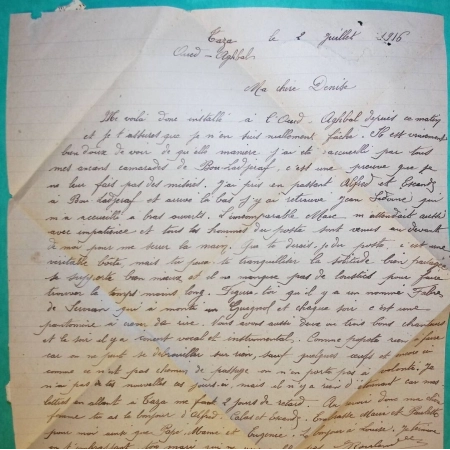 Taza le 2 Juillet 1916
Oued-Aghbal
Ma chère Denise
Me voilà donc installé à l'Oued-Aghbal depuis ce matin
et je t'assure que je n'en suis nullement fâché. Il est vraiment
bien doux de voir de quelle manière j'ai été accueilli par tous
mes anciens camarades de Bou-Ladjeraf, c'est une preuve que je
ne leur fais pas des misères. J'ai pris en passant Alfred et
à Bou Ladjeraf et arrivé là bas j'y ai retrouvé Jean qui
m'a accueilli à bras ouverts. L'incomparable Marc m'attendait aussi
avec impatience et tous les hommes du poste sont venus au devant
de moi pour me serrer la main. Que te dirais-je du poste, c'est une
véritable boîte, mais tu peux te tranquilliser la solitude bien partagée
se supporte bien mieux et il ne manque pas de pour faire
trouver le temps moins long. Figure-toi qu'il y a un nommé
de qui a monté un Guignol et chaque soir c'est une
pantomine à rire. Nous avons aussi deux ou trois bons chanteurs
et le soir il y a concert vocal et instrumental. Comme rien à faire
car on ne peut se débrouiller sur rien, sauf quelques œufs et encore
comme ce n'est pas chemin de passage on n'en porte pas à volonté. Je
n'ai pas de tes nouvelles ces jours-ci, mais il n'y a rien d'étonnant car mes
lettres en allant à Taza me font 2 jours de retard. Au revoir donc ma chère
femme tu as le bonjour d'Alfred, et. Embrasse Mamé et Paulette
pour moi ainsi que Papé, Mamé et Eugénie. Le bonjour à Louise, je termine
en t'embrassant